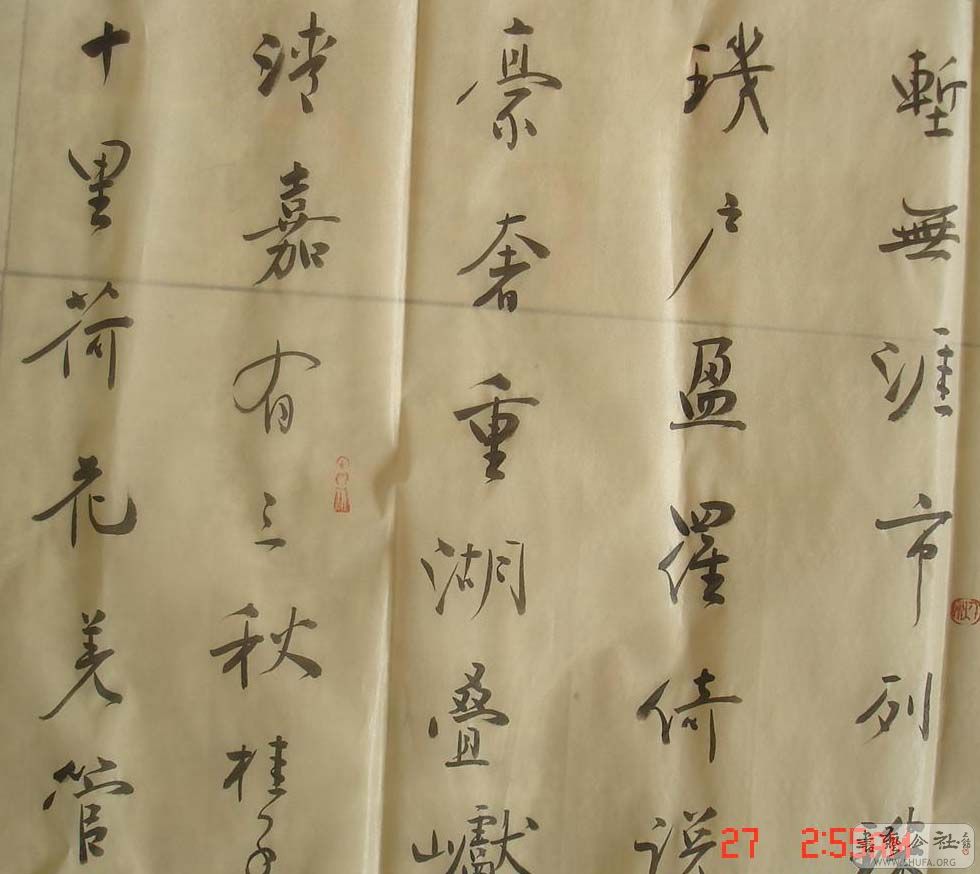 塹無涯市列
璣户盈羅倚
豪奢重湖疊巘
清嘉有三秋桂子
十里荷花羌管
27
書藝公社
WWW.SHUFA.ORG